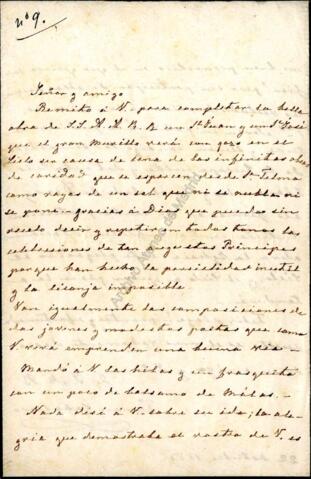 nº 9.
Señor y amigo
Remito á V. para completar la bella
obra de SS. AA. RR. un Sn. Juan y un Sn. José
que el gran Murillo verá con gozo en el
Cielo ser causa de una de las infinitas obras
de caridad que se esparcen desde Sn. Telmo
como rayos de un sol que ni se nubla ni
se pone – gracias á Dios que puedo sin
recelo decir y repetir en todos tonos las
de tan augustos Principes
porque han hecho la parcialidad inutil
y la lisonja imposible
Van igualmente las composiciones de
dos jovenes y modestas poetas que como
V. verá emprenden una buena via –
Mando á V. las hilas y un frasquito
con un poco de balsamo de Málas. –
Nada diré á V. sobre su ida; la ale-
gria que demostraba el rostro de V. es